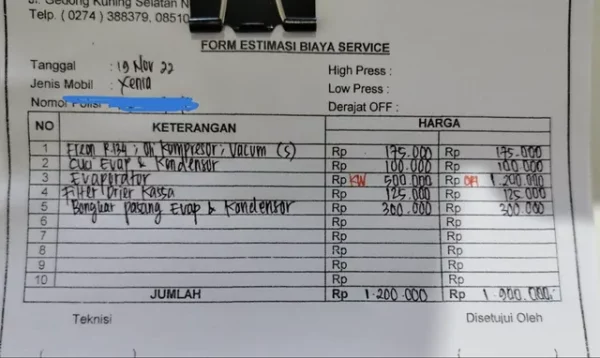 Jl. Gedong Kuning Selatan N
Telp. (0274) 388379, 08510
FORM ESTIMASI BIAYA SERVICE
Tanggal : 19 Nov 22
Jenis Mobil : Xenia
Nomor Polisi :
High Press :
Low Press :
Derajat OFF :
NO KETERANGAN HARGA
1 Freon R.134, Oli Kompresor, Vacum (s) Rp 175.000 Rp 175.000
2 Cuci Evap & Kondensor Rp 100.000 Rp 100.000
3 Evaporator Rp KW 500.000 Rp ORI 1.200.000
4 Filter Drier Kassa Rp 125.000 Rp 125.000
5 Bongkar pasang Evap & Kondensor Rp 300.000 Rp 300.000
6 Rp Rp
7 Rp Rp
8 Rp Rp
9 Rp Rp
10 Rp Rp
JUMLAH Rp 1.200.000 Rp 1.900.000
Teknisi Disetujui Oleh